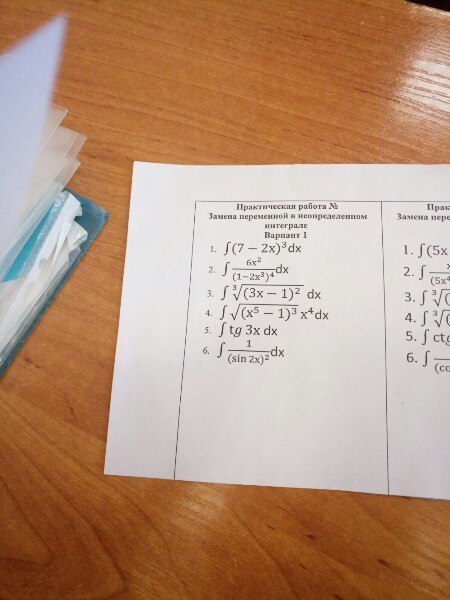 Практическая работа №
Замена переменной в неопределенном
интеграле
Вариант 1
1. ∫(7 − 2x)³dx
2. ∫ 6x²/(1−2x³)⁴ dx
3. ∫ ∛(3x − 1)² dx
4. ∫ √(x⁵ − 1)³ x⁴dx
5. ∫ tg 3x dx
6. ∫ 1/(sin 2x)² dx
1. ∫(5x
2. ∫
(5x⁴
3. ∫ ∛(
4. ∫ ∛(
5. ∫ ctg
6. ∫
(co